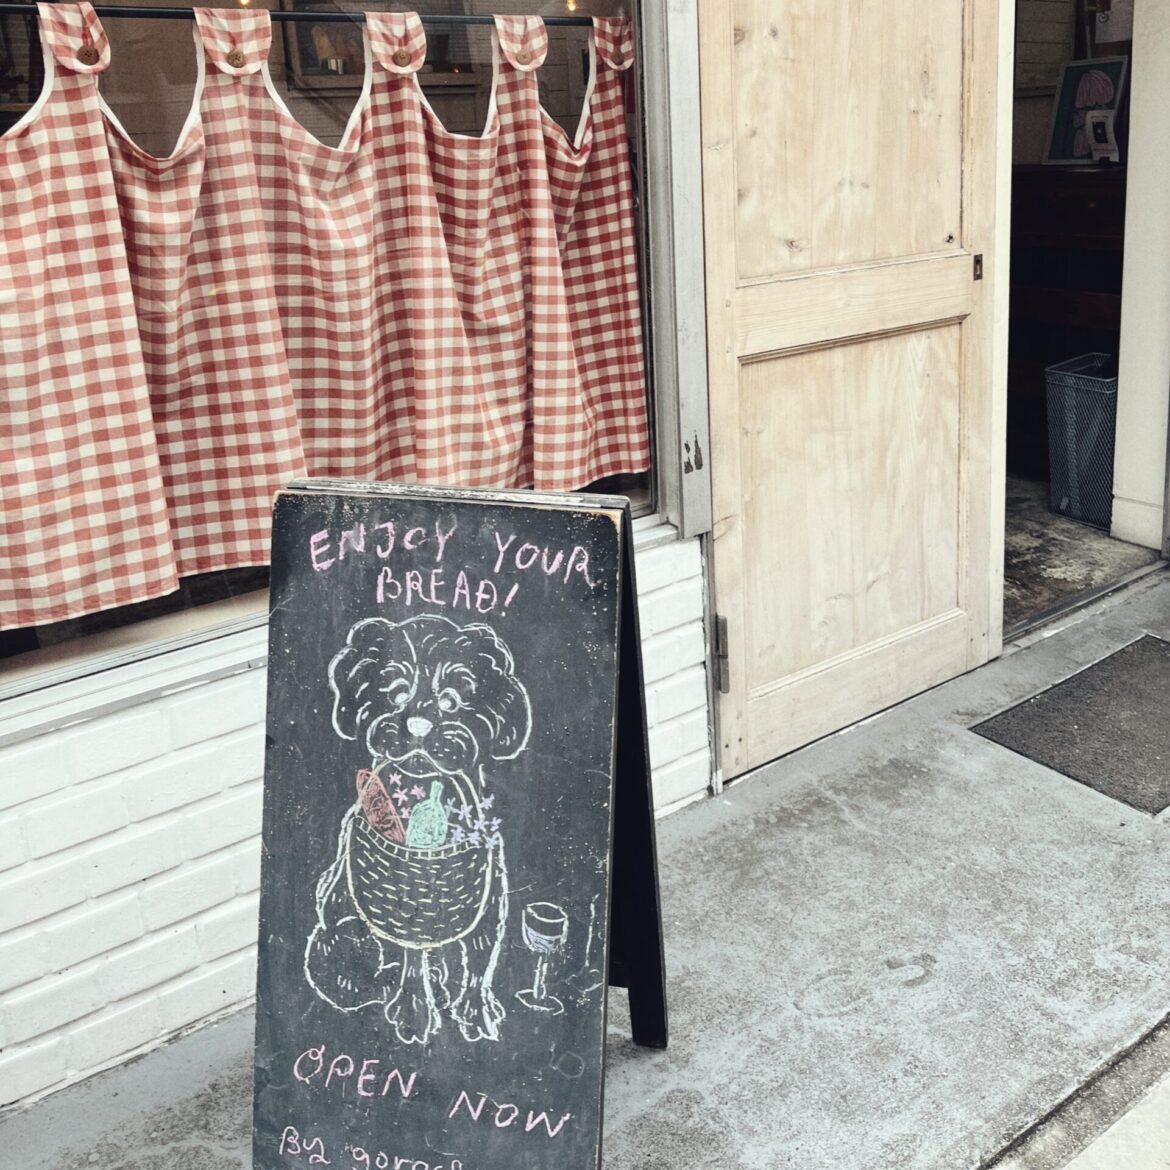 ENJOY YOUR
BREAD!
OPEN NOW
By